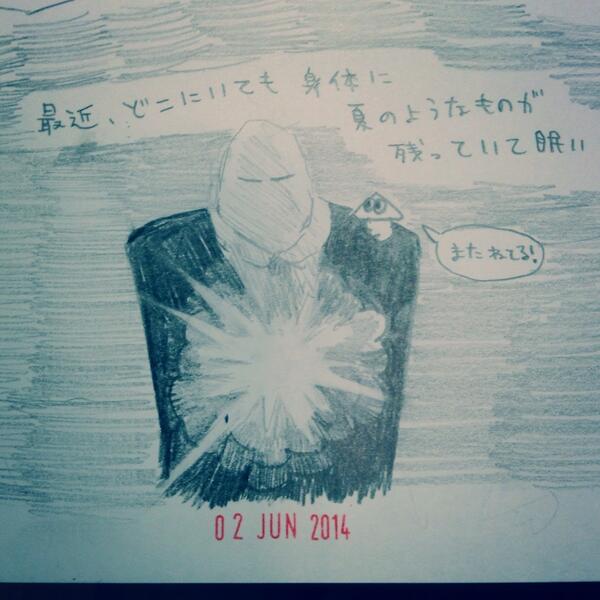 最近、どこにいても身体に
夏のようなものが
残っていて眠い
またねてる!
02 JUN 2014